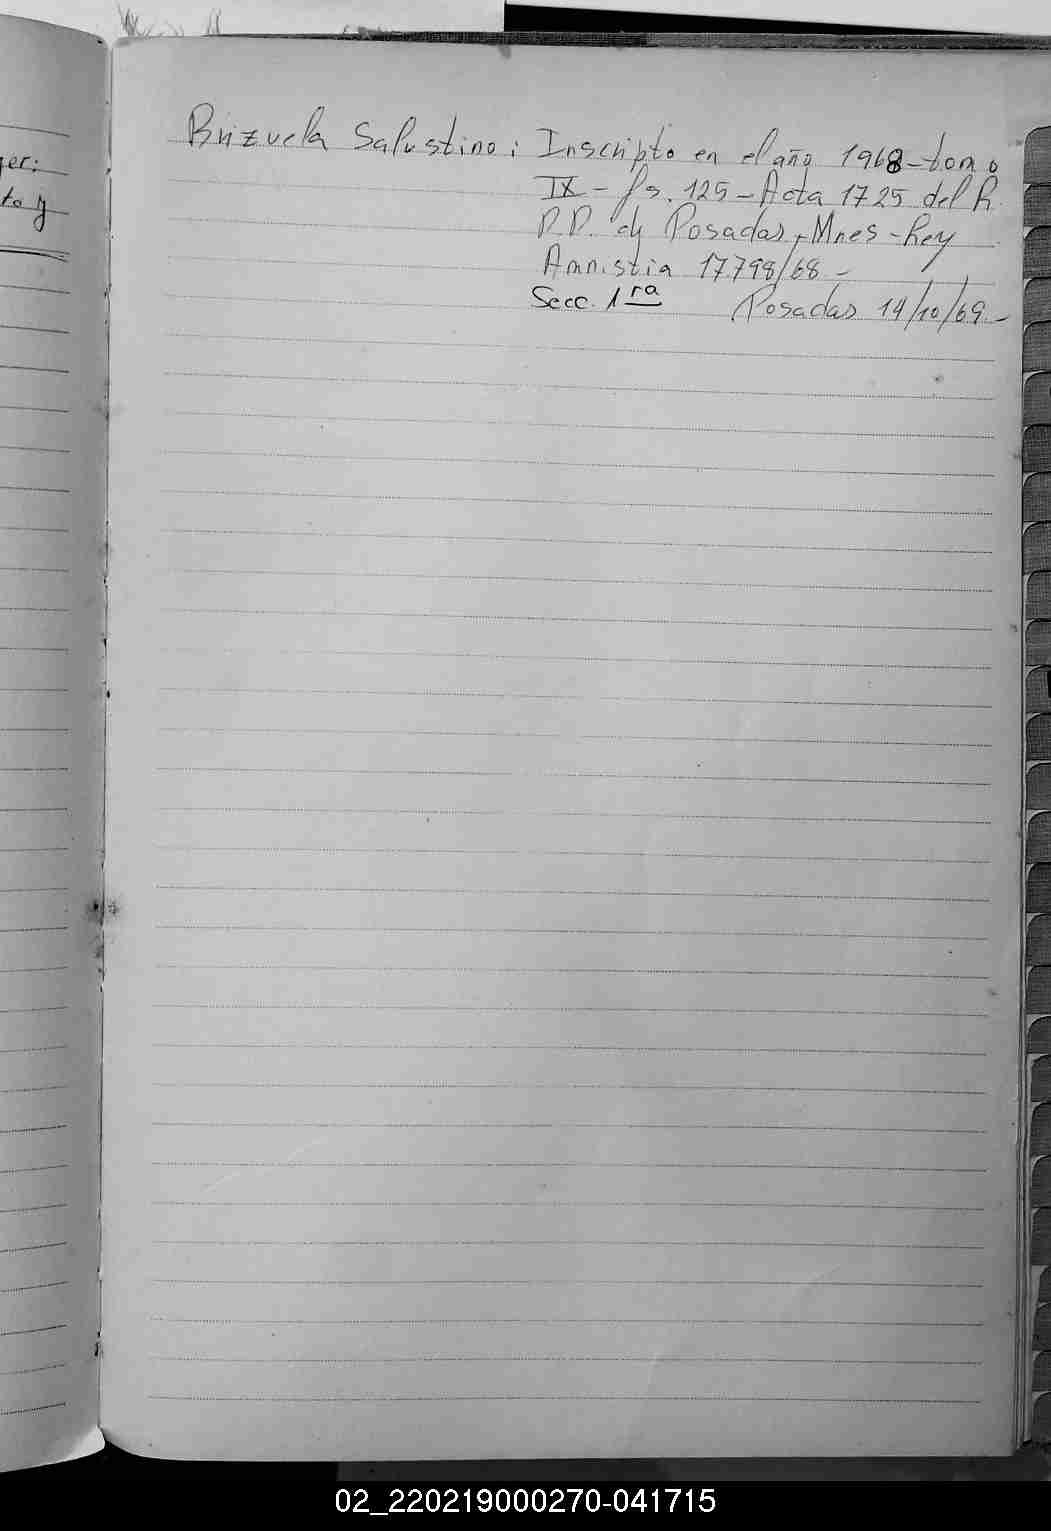 ger:
to y
Brizuela Salustino: Inscripto en el año 1968-tomo
IX - fs. 125 - Acta 1725 del R.
P.P. de Posadas, Mnes - Ley
Amnistia 17.798/68 -
Secc. 1ra Posadas 14/10/69.-
02_220219000270-041715